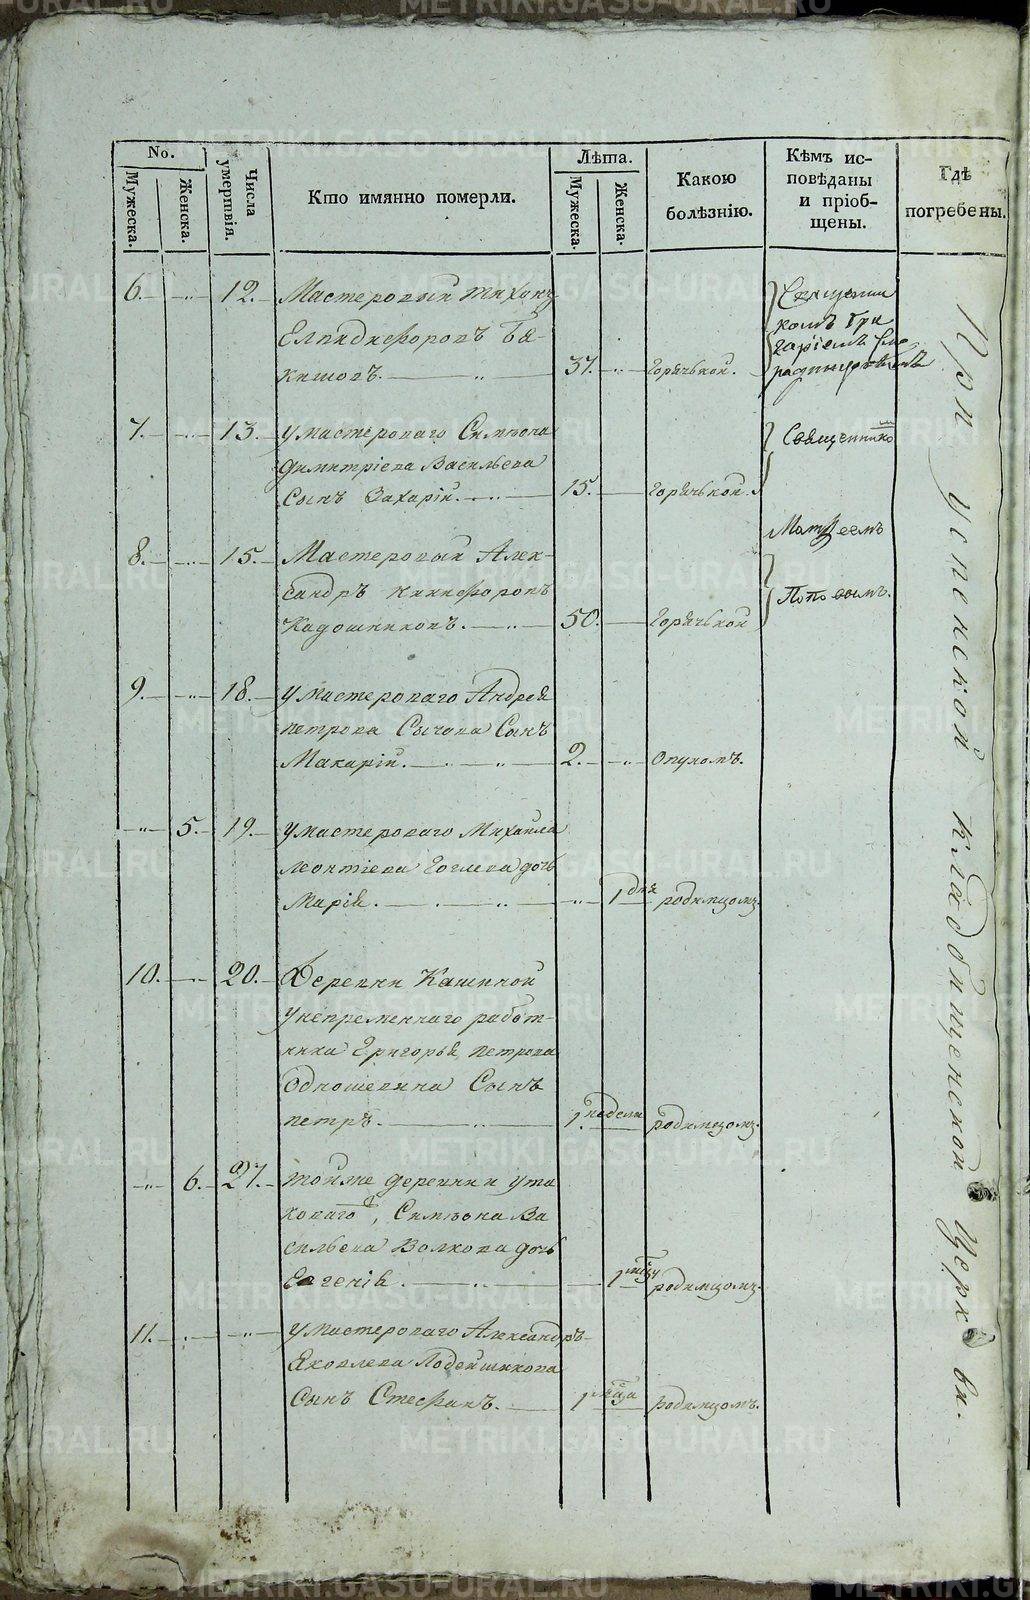 No.
Мужеска.
Женска.
Числа умертвія.
Кто имянно померли.
Лѣта.
Мужеска.
Женска.
Какою болѣзнію.
Кѣмъ исповѣданы и пріобщены.
Гдѣ погребены.
6. — „ — 12. — Мастеровый Тихонъ
Елпидифоровъ
37. — „ — Горячькой.
Священни
комъ Гри
горіемъ
7. — „ — 13. — У мастероваго Симеона
Димитріева Васильева
Сынъ Захарій. — „ — 15. — Горячькой.
Священнико
Матѳеемъ
Поповымъ.
8. — „ — 15. — Мастеровый Алек-
сандръ Никифоровъ
Кадошниковъ. — „ — 50. — Горячькой
9. — „ — 18. — У мастероваго Андрея
Петрова Сычова Сынъ
Макарій. — „ — 2. — „ — Опухомъ.
„ — 5. — 19. — У мастероваго Михайла
Леонтіева Гоглева дочь
Марія. — „ — „ — 1 дня родимцомъ.
10. — „ — 20. — Деревни Кашиной
У непременнаго работ-
ника Григорья Петрова
Одношевина Сынъ
Петръ. — „ — 1. недели родимцомъ.
„ — 6. — 27. — Той же деревни у та
коваго, Симеона Ва
сильева Волкова дочь
Евгенія. — „ — 1 мцу родимцомъ.
11. — „ — „ — У мастероваго Александръ-
Яковлева Лодейщикова
Сынъ Стефанъ. — 1 мца родимцомъ.
При Успенской кладбищенской Церкви.
METRIKI.GASO-URAL.RU